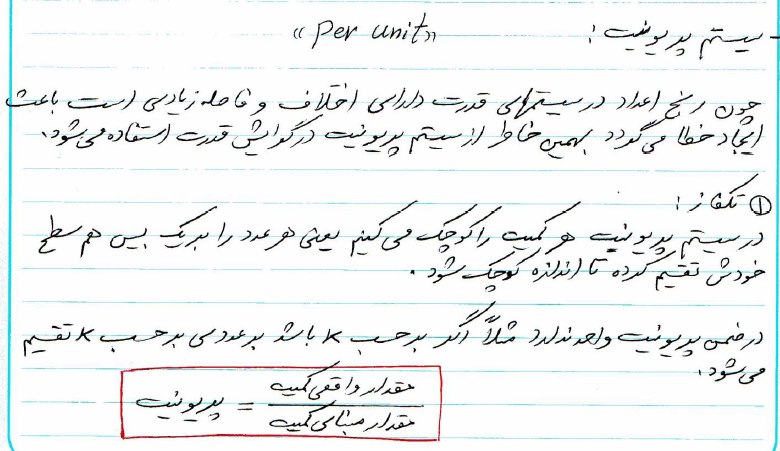 - سیستم پریونیت : «per unit»
چون رنج اعداد در سیستمهای قدرت دارای اختلاف و فاصله زیادی است باعث
ایجاد خطا می‌گردد بهمین خاطر از سیستم پریونیت در گرایش قدرت استفاده می‌شود.
① تکفاز :
در سیستم پریونیت هر کمیت را کوچک می‌کنیم یعنی هر عدد را بر یک بیس هم سطح
خودش تقسیم کرده تا اندازه کوچک شود.
در ضمن پریونیت واحد ندارد مثلاً اگر بر حسب K باشد بر عددی بر حسب K تقسیم
می‌شود.
مقدار واقعی کمیت
پریونیت =
مقدار مبنای کمیت